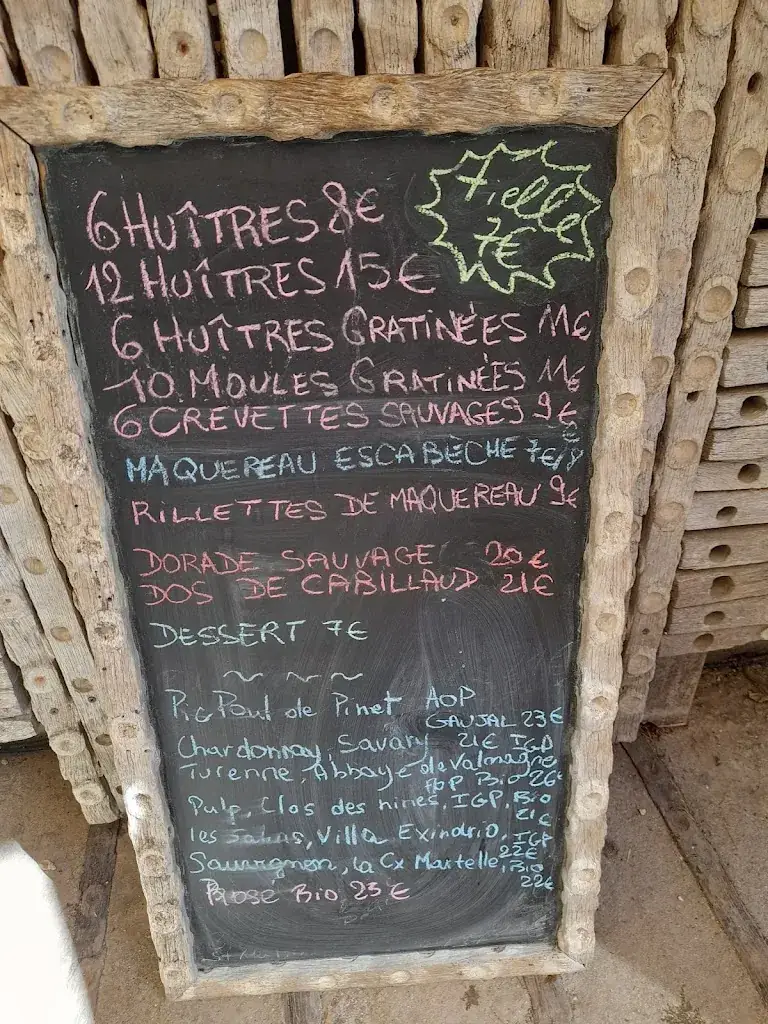 6 HUÎTRES 8€
Tielle
7€
12 HUÎTRES 15€
6 HUÎTRES GRATINÉES 11€
10 MOULES GRATINÉES 11€
6 CREVETTES SAUVAGES 9€
MAQUEREAU ESCABÈCHE 7€
RILLETTES DE MAQUEREAU 9€
DORADE SAUVAGE 20€
DOS DE CABILLAUD 21€
DESSERT 7€
~ ~ ~
Pic Poul de Pinet AOP
GAUJAL 23€
Chardonnay Savary 21€ IGP
Turenne, Abbaye de Valmagne
AOP Bio 26€
Pulp, Clos des nines, IGP, Bio
21€
les, Villa Exindrio, IGP
22€
Sauvignon, la Cx Martelle, Bio
22€
Rosé Bio 23€